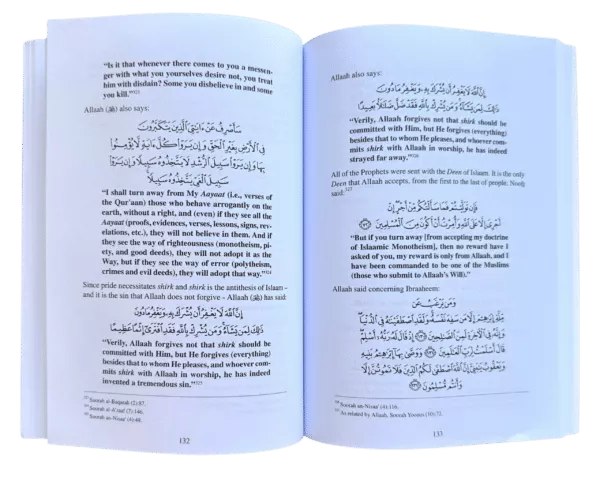 "Is it that whenever there comes to you a messen-
ger with what you yourselves desire not, you treat
him with disdain? Some you disbelieve in and some
you kill."¹²³
Allaah (ﷻ) also says:
سَأَصْرِفُ عَنْ ءَايَٰتِىَ ٱلَّذِينَ يَتَكَبَّرُونَ
فِى ٱلْأَرْضِ بِغَيْرِ ٱلْحَقِّ وَإِن يَرَوْا۟ كُلَّ ءَايَةٍ لَّا يُؤْمِنُوا۟
بِهَا وَإِن يَرَوْا۟ سَبِيلَ ٱلرُّشْدِ لَا يَتَّخِذُوهُ سَبِيلًا وَإِن يَرَوْا۟
سَبِيلَ ٱلْغَىِّ يَتَّخِذُوهُ سَبِيلًا
"I shall turn away from My Aayaat (i.e., verses of
the Qur'aan) those who behave arrogantly on the
earth, without a right, and (even) if they see all the
Aayaat (proofs, evidences, verses, lessons, signs, rev-
elations, etc.), they will not believe in them. And if
they see the way of righteousness (monotheism, pi-
ety, and good deeds), they will not adopt it as the
Way, but if they see the way of error (polytheism,
crimes and evil deeds), they will adopt that way."¹²⁴
Since pride necessitates shirk and shirk is the antithesis of Islaam -
and it is the sin that Allaah does not forgive - Allaah (ﷻ) has said:
إِنَّ ٱللَّهَ لَا يَغْفِرُ أَن يُشْرَكَ بِهِۦ وَيَغْفِرُ مَا دُونَ
ذَٰلِكَ لِمَن يَشَآءُ وَمَن يُشْرِكْ بِٱللَّهِ فَقَدِ ٱفْتَرَىٰٓ إِثْمًا عَظِيمًا
"Verily, Allaah forgives not that shirk should be
committed with Him, but He forgives (everything)
besides that to whom He pleases, and whoever com-
mits shirk with Allaah in worship, he has indeed
invented a tremendous sin."¹²⁵
¹²³ Soorah al-Baqarah (2):87.
¹²⁴ Soorah al-A'raaf (7):146.
¹²⁵ Soorah an-Nisaa' (4):48.
132
Allaah also says:
إِنَّ ٱللَّهَ لَا يَغْفِرُ أَن يُشْرَكَ بِهِۦ وَيَغْفِرُ مَا دُونَ
ذَٰلِكَ لِمَن يَشَآءُ وَمَن يُشْرِكْ بِٱللَّهِ فَقَدْ ضَلَّ ضَلَٰلًۢا بَعِيدًا
"Verily, Allaah forgives not that shirk should be
committed with Him, but He forgives (everything)
besides that to whom He pleases, and whoever com-
mits shirk with Allaah in worship, he has indeed
strayed far away."¹²⁶
All of the Prophets were sent with the Deen of Islaam. It is the only
Deen that Allaah accepts, from the first to the last of people; Nooh
said:¹²⁷
فَإِن تَوَلَّيْتُمْ فَمَا سَأَلْتُكُم مِّنْ أَجْرٍ إِنْ
أَجْرِىَ إِلَّا عَلَى ٱللَّهِ وَأُمِرْتُ أَنْ أَكُونَ مِنَ ٱلْمُسْلِمِينَ ﴿٧٢﴾
"But if you turn away [from accepting my doctrine
of Islaamic Monotheism], then no reward have I
asked of you, my reward is only from Allaah, and I
have been commanded to be one of the Muslims
(those who submit to Allaah's Will)."
Allaah said concerning Ibraaheem:
وَمَن يَرْغَبُ عَن
مِّلَّةِ إِبْرَٰهِۦمَ إِلَّا مَن سَفِهَ نَفْسَهُۥ وَلَقَدِ ٱصْطَفَيْنَٰهُ فِى ٱلدُّنْيَا
وَإِنَّهُۥ فِى ٱلْءَاخِرَةِ لَمِنَ ٱلصَّٰلِحِينَ ﴿١٣٠﴾ إِذْ قَالَ لَهُۥ رَبُّهُۥٓ أَسْلِمْ
قَالَ أَسْلَمْتُ لِرَبِّ ٱلْعَٰلَمِينَ ﴿١٣١﴾ وَوَصَّىٰ بِهَآ إِبْرَٰهِۦمُ بَنِيهِ
وَيَعْقُوبُ يَٰبَنِىَّ إِنَّ ٱللَّهَ ٱصْطَفَىٰ لَكُمُ ٱلدِّينَ فَلَا تَمُوتُنَّ إِلَّا
وَأَنتُم مُّسْلِمُونَ ﴿١٣٢﴾
¹²⁶ Soorah an-Nisaa' (4):116.
¹²⁷ As related by Allaah, Soorah Yoonus (10):72.
133